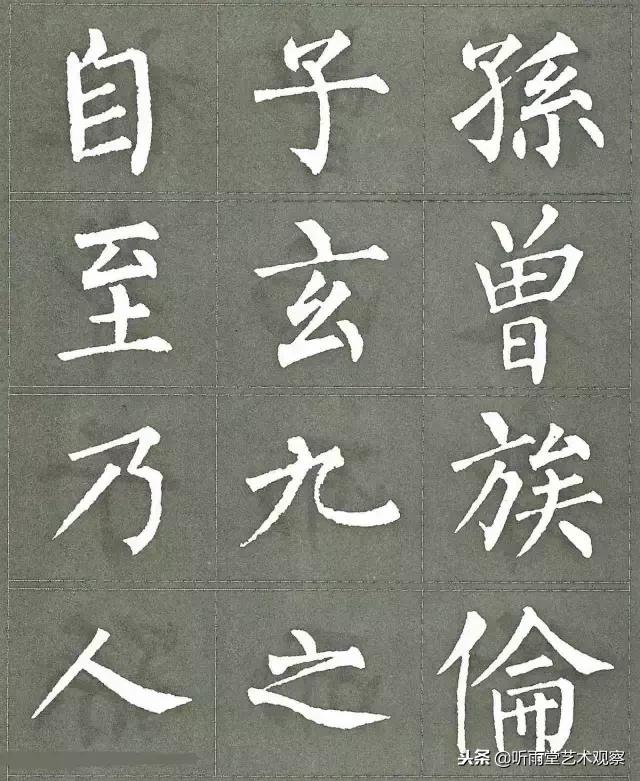 自子孫
至玄曾
乃九族
人之倫
头条 @听雨堂艺术观察